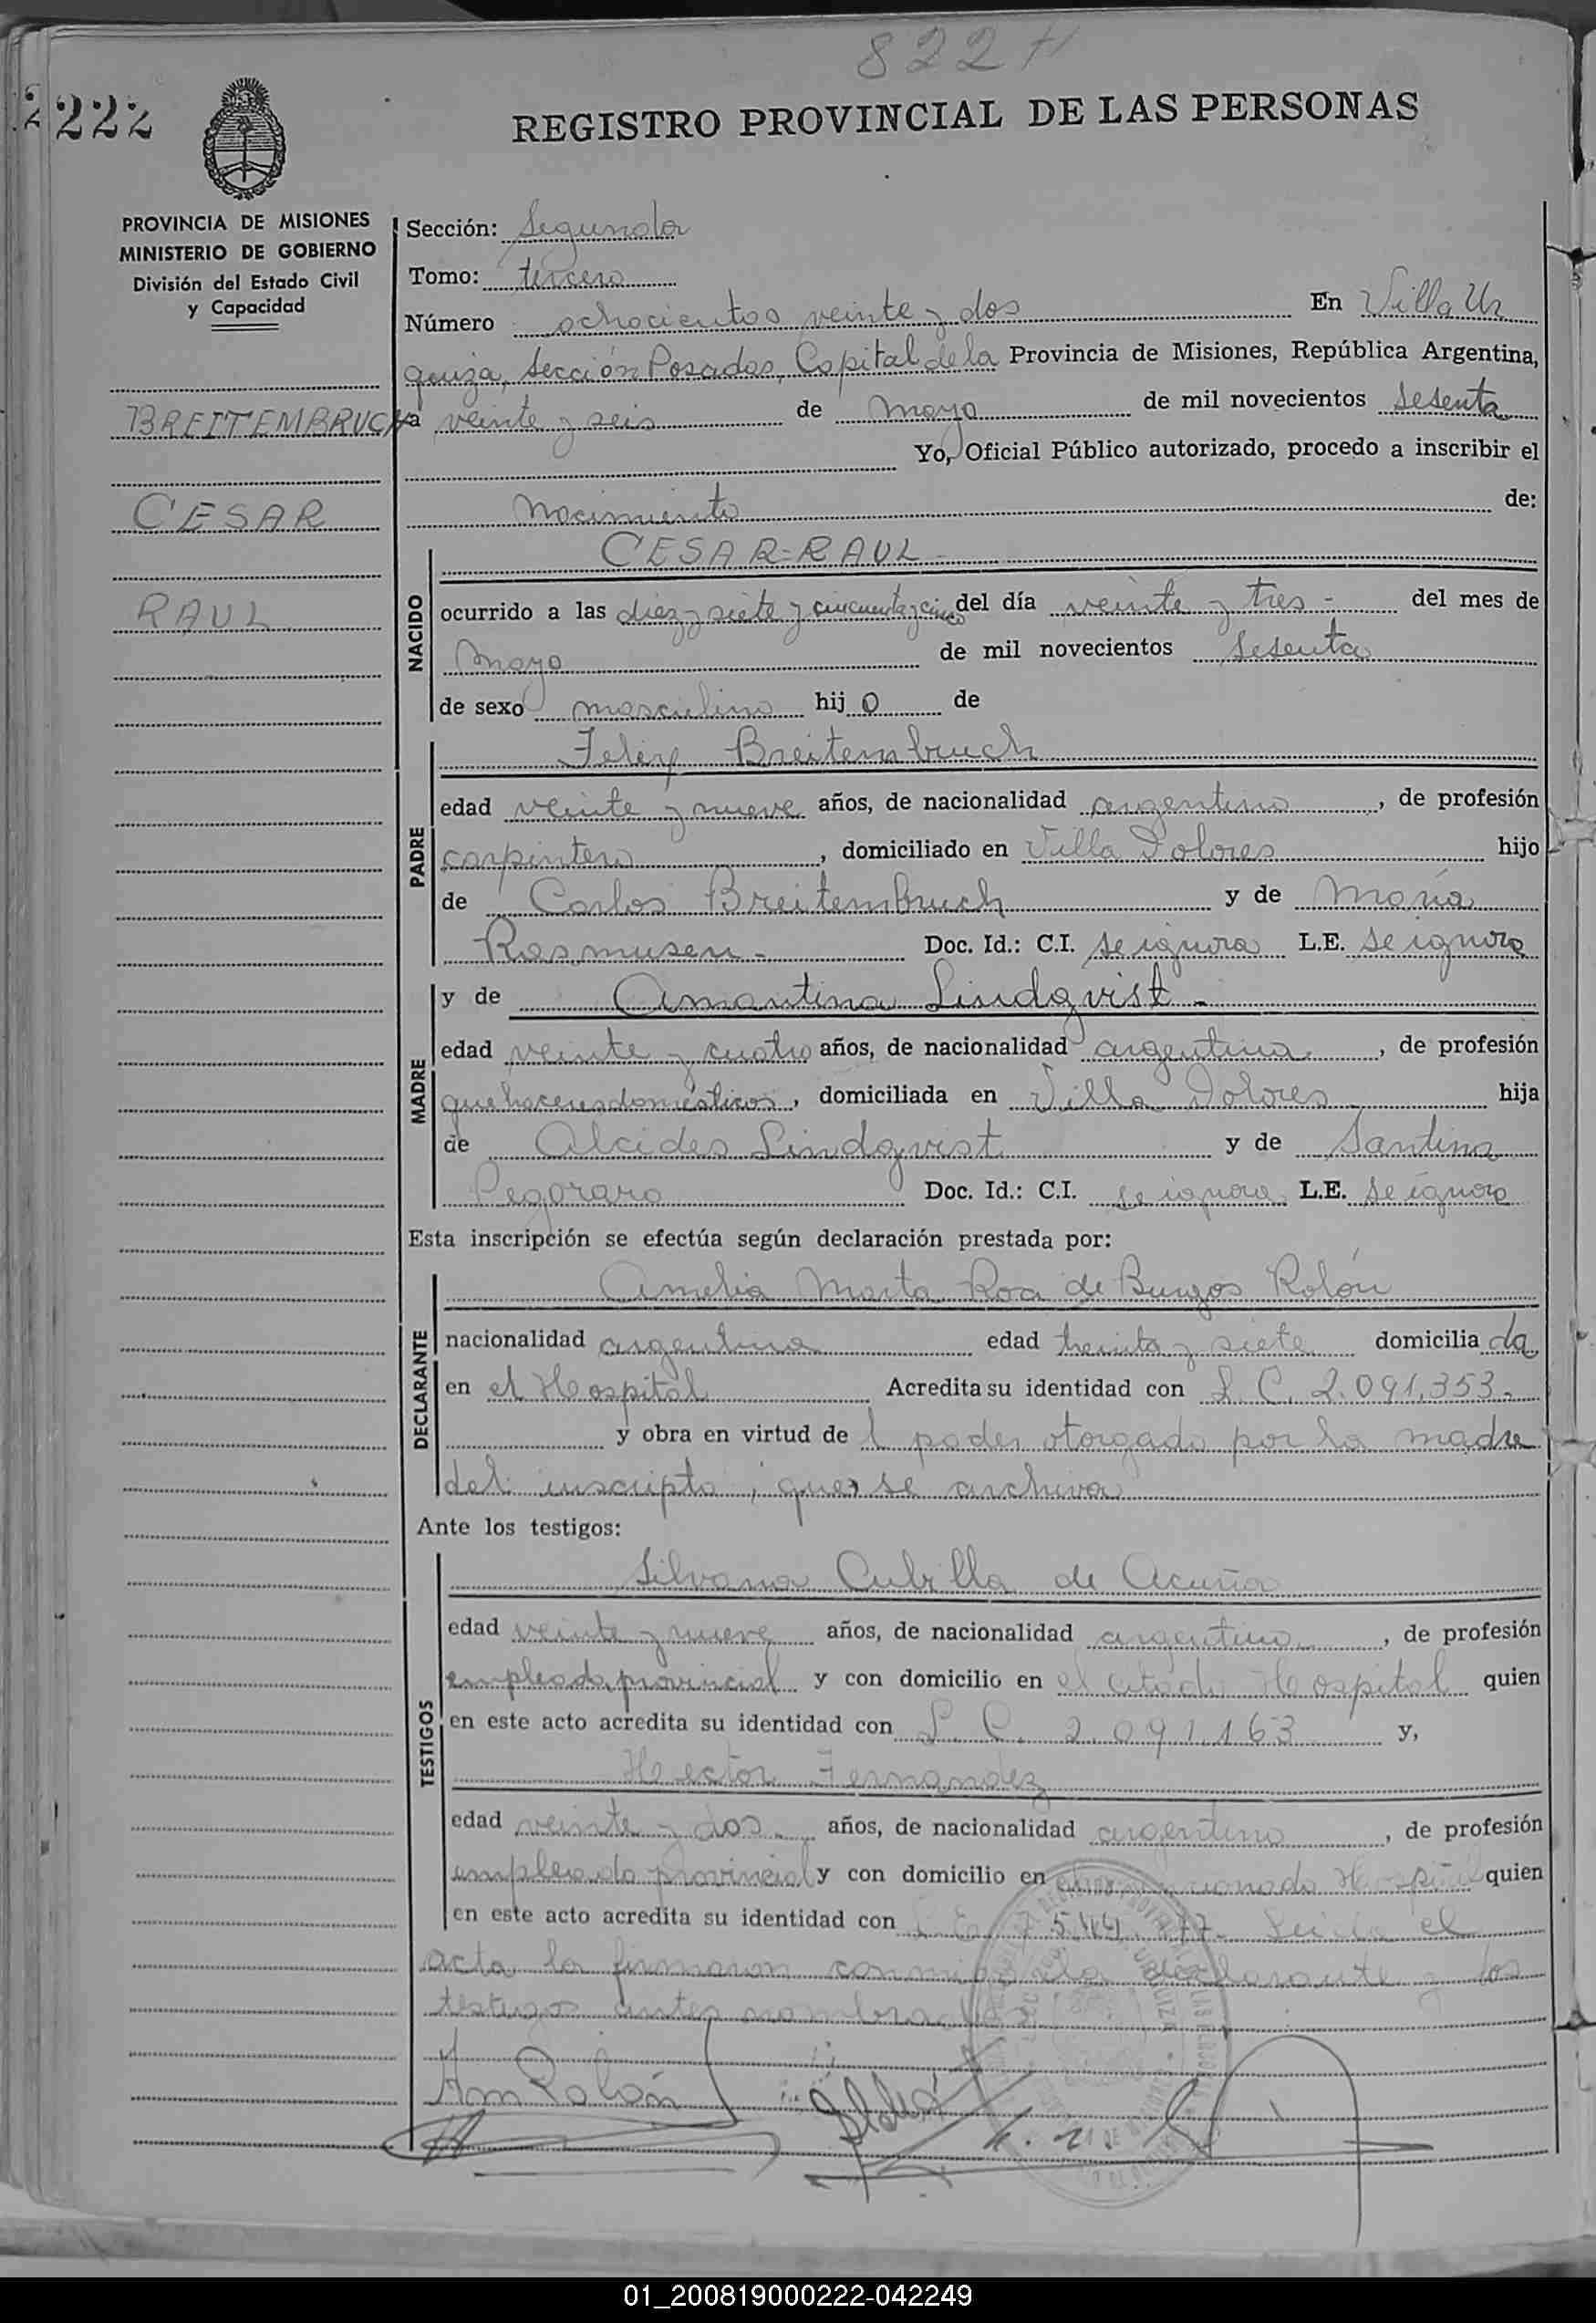 822
222
REGISTRO PROVINCIAL DE LAS PERSONAS
PROVINCIA DE MISIONES
MINISTERIO DE GOBIERNO
División del Estado Civil
y Capacidad
BREITEMBRUCH
CESAR
RAUL
Sección: Segunda
Tomo: tercero
Número ochocientos veinte y dos En Villa Ur
quiza, Sección Posadas, Capital de la Provincia de Misiones, República Argentina,
a veinte y seis de mayo de mil novecientos sesenta
Yo, Oficial Público autorizado, procedo a inscribir el
nacimiento de:
NACIDO
CESAR=RAUL
ocurrido a las diez y siete y cincuenta y cinco del día veinte y tres - del mes de
mayo de mil novecientos sesenta
de sexo masculino hij o de
PADRE
Felix Breitembruch
edad veinte y nueve años, de nacionalidad argentino, de profesión
carpintero, domiciliado en Villa Dolores hijo
de Carlos Breitembruch y de María
Rasmusen - Doc. Id.: C.I. se ignora L.E. se ignora
MADRE
y de Amantina Lindqvist -
edad veinte y cuatro años, de nacionalidad argentina, de profesión
quehaceres domésticos, domiciliada en Villa Dolores hija
de Alcides Lindqvist y de Santina
Pegoraro Doc. Id.: C.I. se ignora L.E. se ignora
Esta inscripción se efectúa según declaración prestada por:
DECLARANTE
Amelia Marta Roa de Burgos Rolón
nacionalidad argentina edad treinta y siete domicilia da
en el Hospital Acredita su identidad con L.C. 2.091.353-
y obra en virtud de l poder otorgado por la madre
del inscripto, que se archiva
Ante los testigos:
TESTIGOS
Silvana Cubilla de Acuña
edad veinte y nueve años, de nacionalidad argentina, de profesión
empleada provincial y con domicilio en el citado Hospital quien
en este acto acredita su identidad con L.C. 2.091.163 y,
Hector Fernandez
edad veinte y dos años, de nacionalidad argentino, de profesión
empleado provincial y con domicilio en el mencionado Hospital quien
en este acto acredita su identidad con Leida el
acta la firmaron conmigo la declarante y los
testigos antes nombrados
Am Rolón
01_200819000222-042249